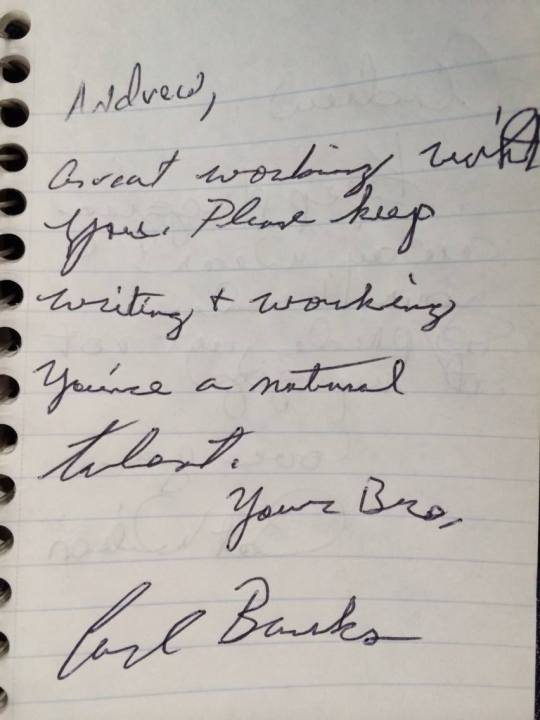 Andrew,
Great working with
you. Please keep
writing + working
You're a natural
talent.
Your Bro,
Carl Banks